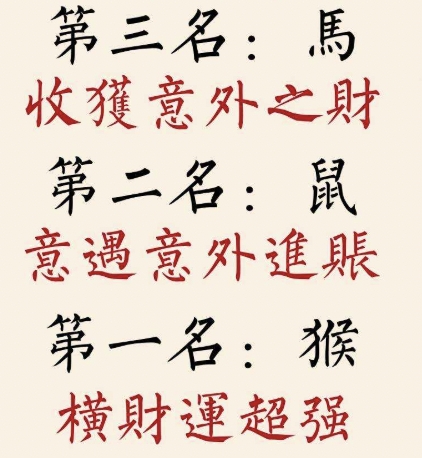 第三名：馬
收獲意外之財
第二名：鼠
意遇意外進賬
第一名：猴
橫財運超强